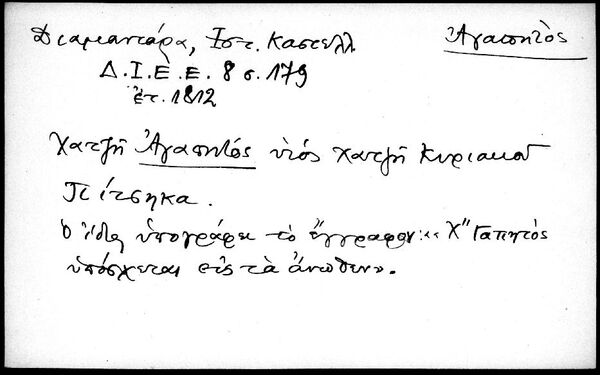 Διαμαντάρα, Ἱστ. Καστελλ
Ἀγαπητὸς
Δ.Ι.Ε.Ε. 8 σ. 179
ἔτ. 1812
Χατζῆ Ἀγαπητός υἱός χατζῆ Κυριακοῦ
Πίτσηκα.
ὁ ἴδιος ὑπογράφει τὸ ἔγγραφον: «Χ" Γαπητὸς
ὑπόσχεται εἰς τὰ ἄνωθεν».